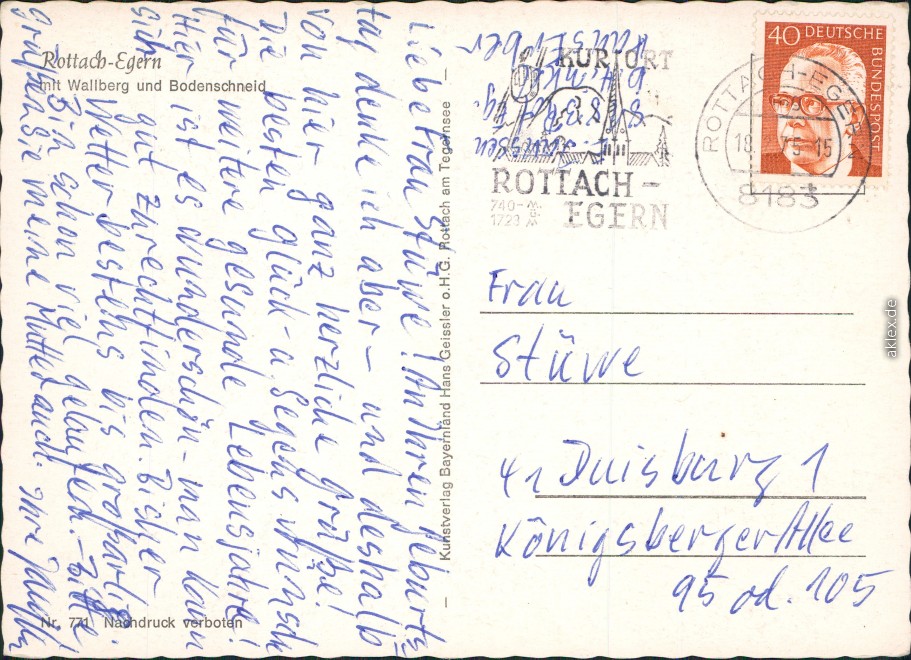 Rottach-Egern
mit Wallberg und Bodenschneid
Liebe Frau Stüwe! An Ihren Geburts-
tag denke ich aber – und deshalb
von hier ganz herzliche Grüße!
Die besten Glück- u. Segenswünsche
für weitere gesunde Lebensjahre!
Hier ist es wunderschön – man kann
sich gut zurechtfinden. Bisher
Wetter bestens bis großartig.
Bin schon viel gelaufen. – Bitte
grüßen Sie meine Mutter auch. Ihre
Nr. 771 Nachdruck verboten
Kunstverlag Bayernland Hans Geissler o.H.G. Rottach am Tegernsee
KURORT
ROTTACH-
EGERN
740-
1723
ROTTACH-EGERN 2
18. 75-15
8183
40 DEUTSCHE BUNDESPOST
Frau
Stüwe
41 Duisburg 1
Königsberger Allee
95 od. 105
aklex.de